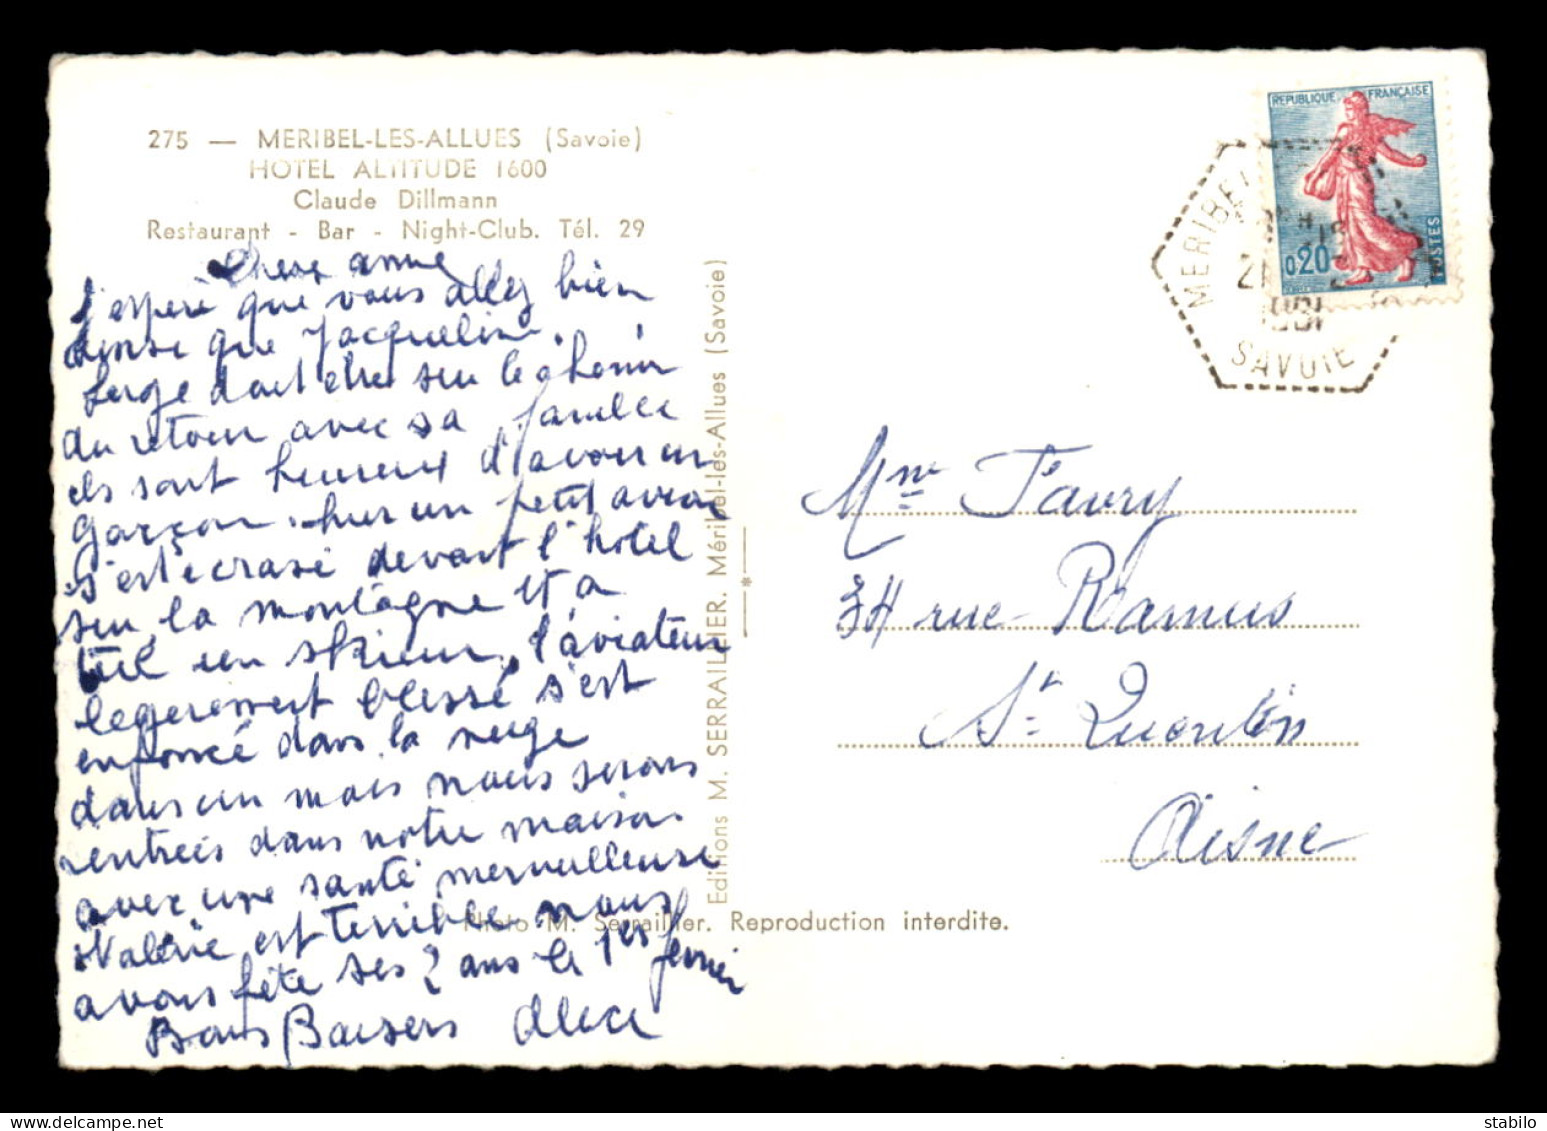 275 — MERIBEL-LES-ALLUES (Savoie)
HOTEL ALTITUDE 1600
Claude Dillmann
Restaurant - Bar - Night-Club. Tél. 29
Chere anne
J'espère que vous allez bien
ainsi que Jacqueline.
Serge doit être sur le chemin
du retour avec sa famille
ils sont heureux d'avoir un
garçon. hier un petit avion
s'est écrasé devant l'hotel
sur la montagne et a
tué un skieur, l'aviateur
legerement blessé s'est
enfoncé dans la neige
dans un mois nous serons
rentrées dans notre maison
avec une santé merveilleuse
Valérie est terrible nous
avons fété ses 2 ans le 1er fevrier
Bons Baisers Alice
Editions M. SERRAILLIER. Méribel-les-Allues (Savoie)
Photo M. Serraillier. Reproduction interdite.
REPUBLIQUE FRANÇAISE
0,20
POSTES
MERIBEL
SAVOIE
Mme Favry
34 rue Ramus
St Quentin
Aisne
stabilo